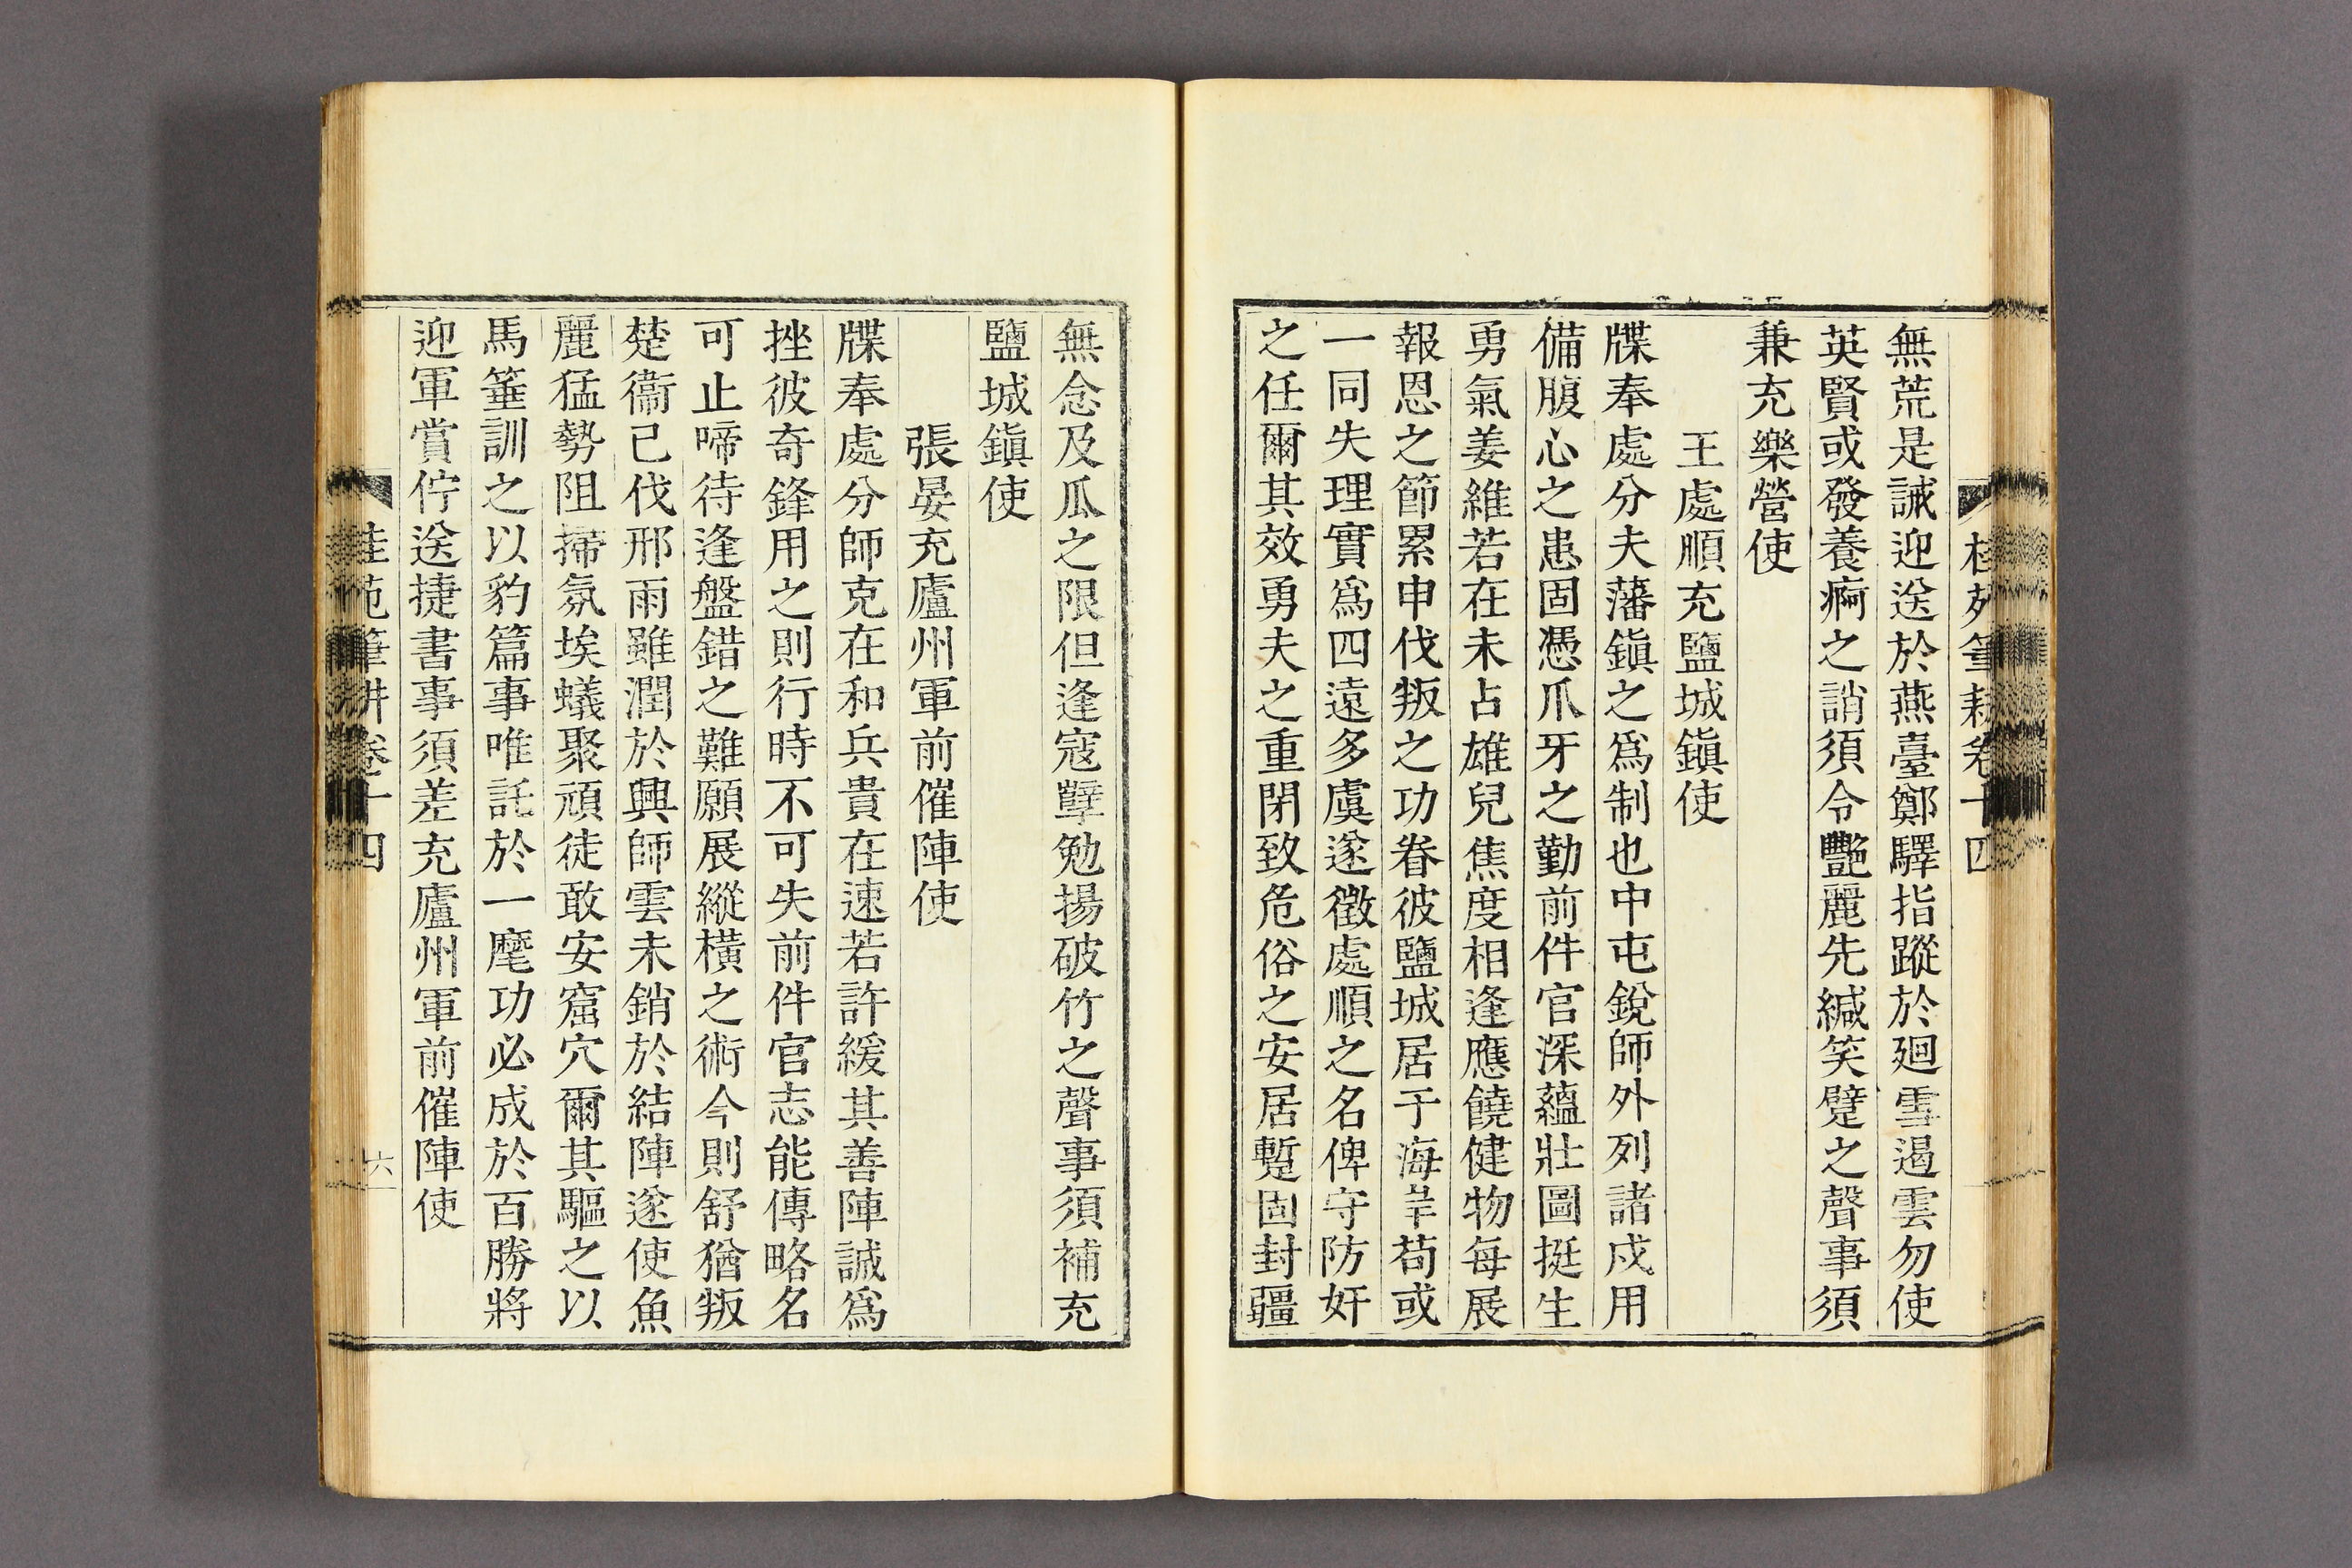 桂苑筆耕卷十四
無荒是誡迎送於燕臺鄭驛指蹤於廻雪遏雲勿使
英賢或發養痾之誚須令艷麗先緘笑躄之聲事須
兼充樂營使
王處順充鹽城鎭使
牒奉處分夫藩鎭之爲制也中屯銳師外列諸戍用
備腹心之患固憑爪牙之勤前件官深蘊壯圖挺生
勇氣姜維若在未占雄兒焦度相逢應饒健物每展
報恩之節累申伐叛之功眷彼鹽城居于海𡴀苟或
一同失理實爲四遠多虞遂徵處順之名俾守防奸
之任爾其效勇夫之重閉致危俗之安居蹔固封疆
無念及瓜之限但逢寇孼勉揚破竹之聲事須補充
鹽城鎭使
張晏充廬州軍前催陣使
牒奉處分師克在和兵貴在速若許緩其善陣誠爲
挫彼奇鋒用之則行時不可失前件官志能傳略名
可止啼待逢盤錯之難願展縱橫之術今則舒猶叛
楚衞已伐邢雨雖潤於興師雲未銷於結陣遂使魚
麗猛勢阻掃氛埃蟻聚頑徒敢安窟穴爾其驅之以
馬箠訓之以豹篇事唯託於一麾功必成於百勝將
迎軍賞佇送捷書事須差充廬州軍前催陣使
桂苑筆耕卷十四
六